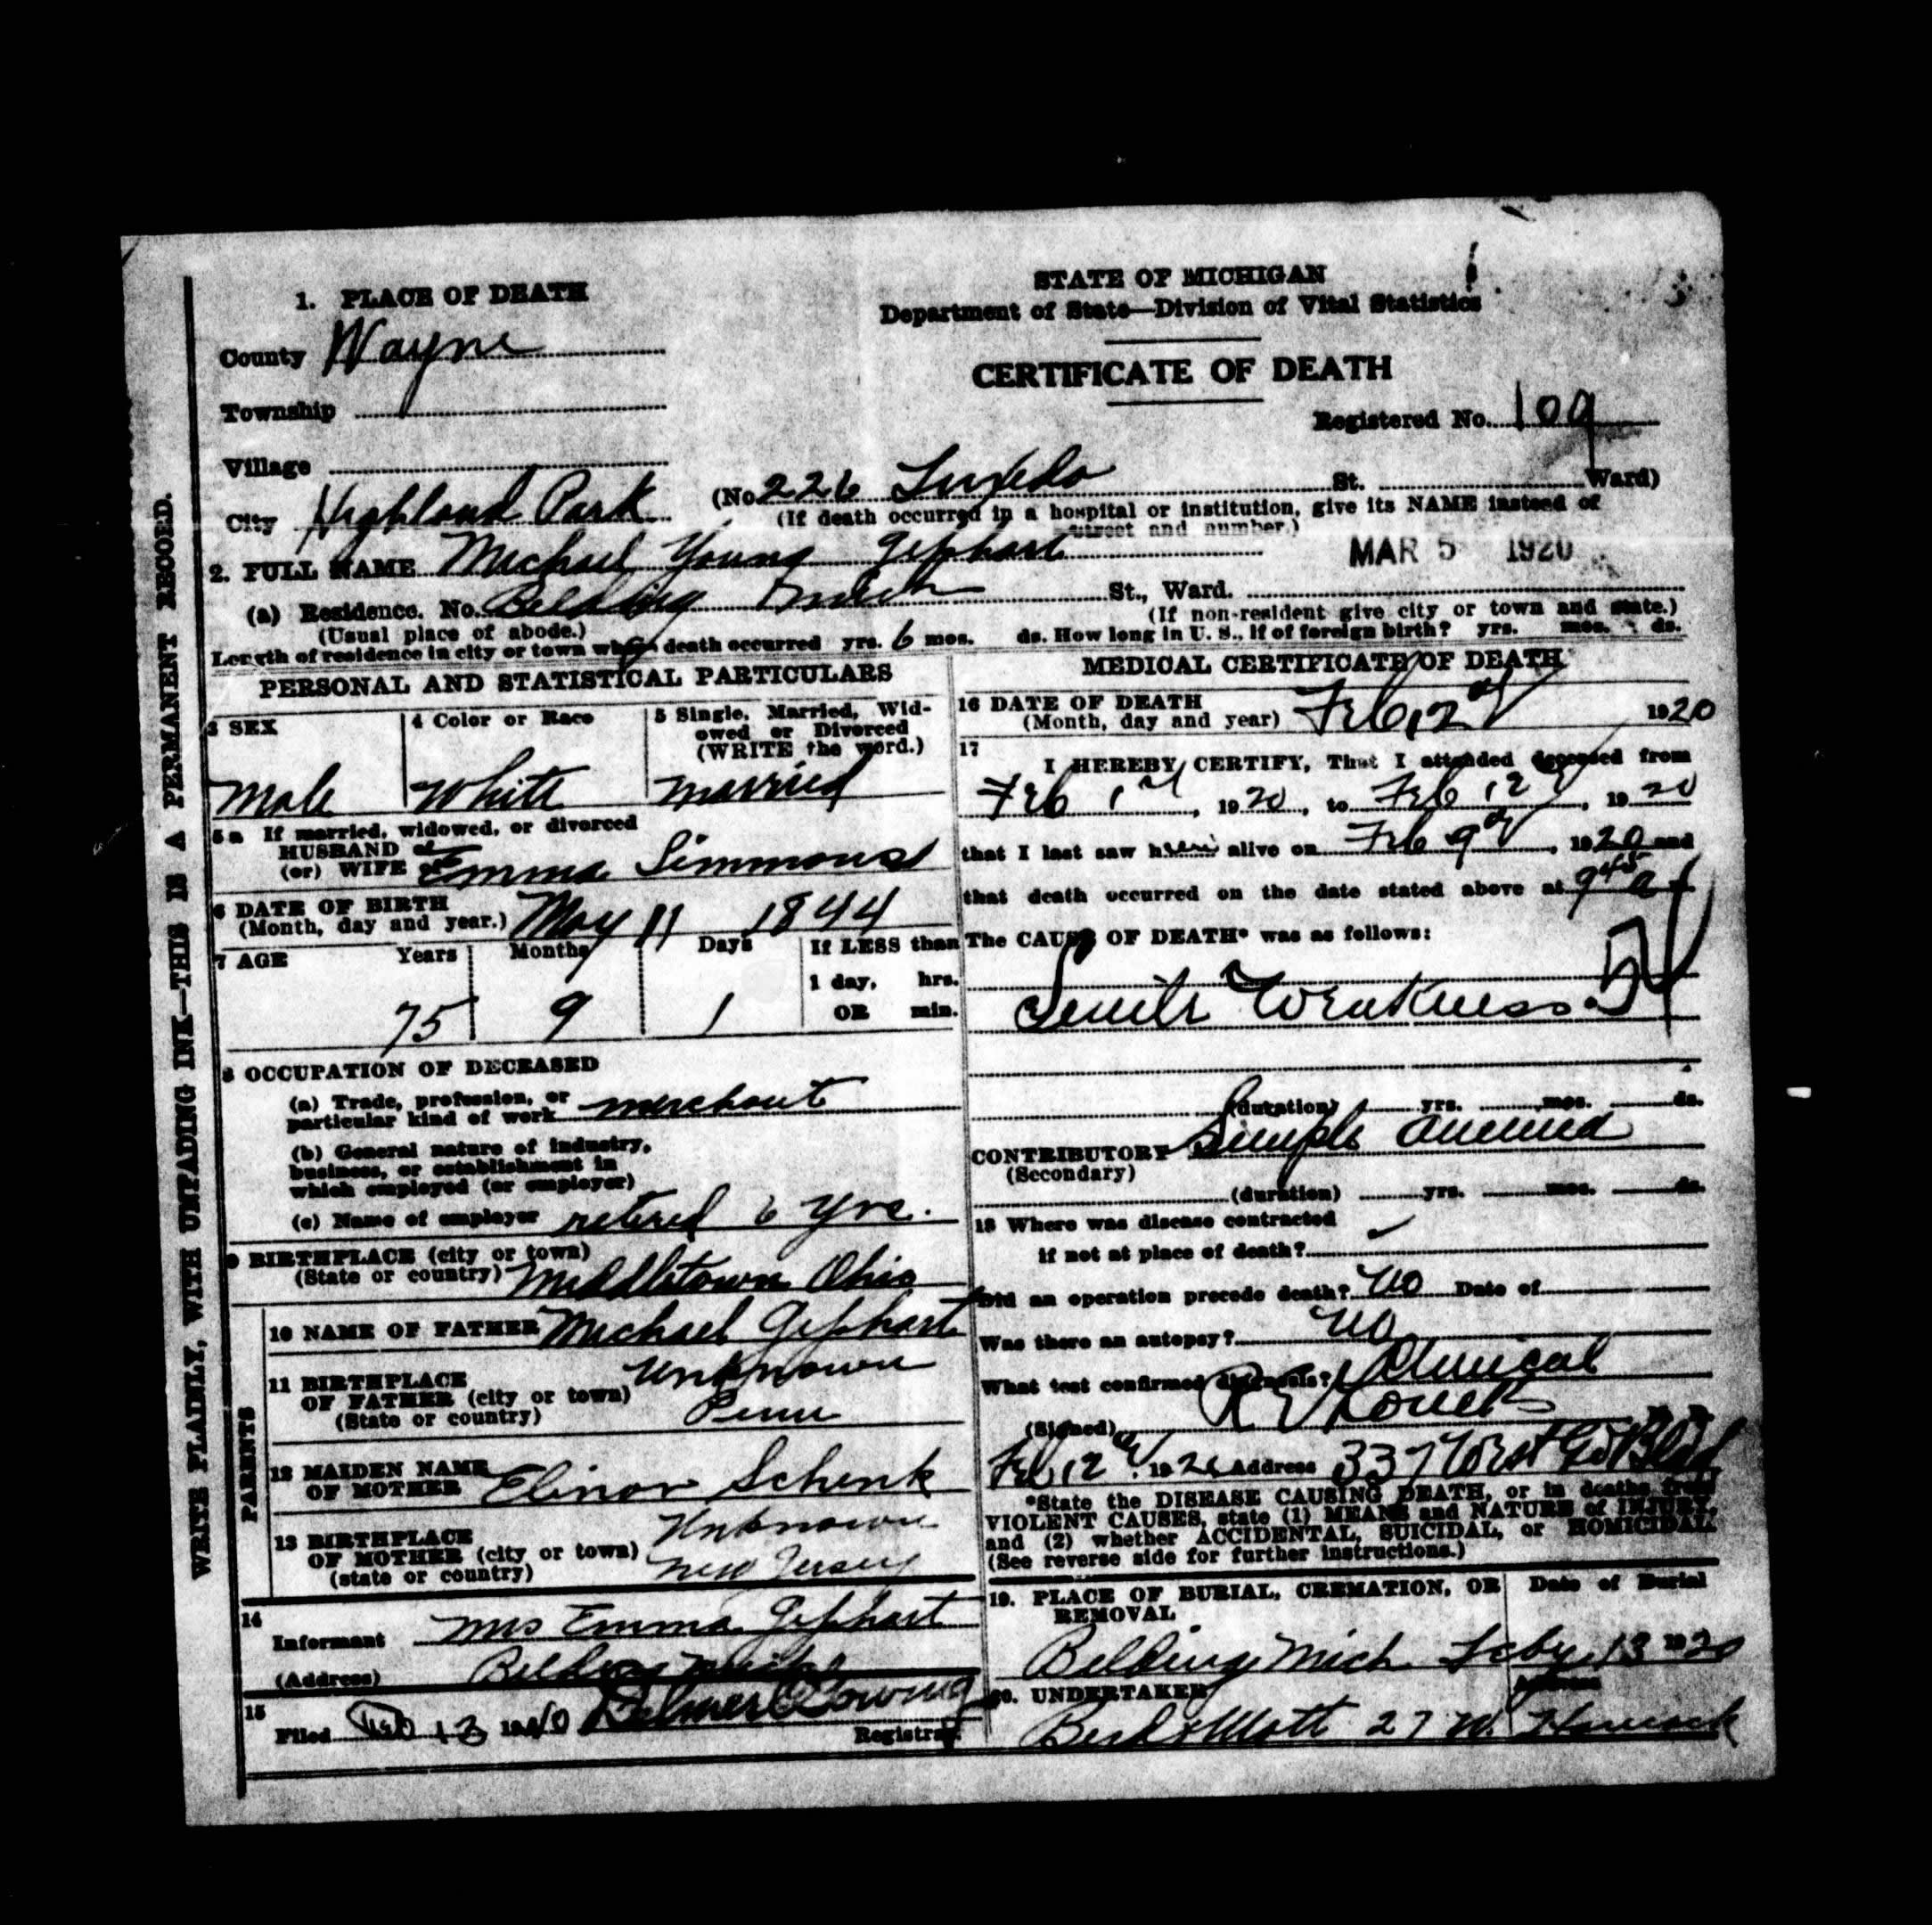 STATE OF MICHIGAN
Department of State—Division of Vital Statistics
CERTIFICATE OF DEATH
Registered No. 109
1. PLACE OF DEATH
County Wayne
Township
Village
City Highland Park (No. 226 Tuxedo St. Ward)
(If death occurred in a hospital or institution, give its NAME instead of street and number.)
2. FULL NAME Michael Young Gephart
MAR 5 1920
(a) Residence. No. Belding Mich St., Ward.
(Usual place of abode.) (If non-resident give city or town and state.)
Length of residence in city or town where death occurred yrs. 6 mos. ds. How long in U. S., if of foreign birth? yrs. mos. ds.
PERSONAL AND STATISTICAL PARTICULARS
3 SEX
Male
4 Color or Race
White
5 Single, Married, Widowed or Divorced
(WRITE the word.)
married
5a If married, widowed, or divorced
HUSBAND of
(or) WIFE of Emma Simmons
6 DATE OF BIRTH
(Month, day and year.) May 11 1844
7 AGE Years Months Days If LESS than
1 day, hrs.
OR min.
75 9 1
8 OCCUPATION OF DECEASED
(a) Trade, profession, or
particular kind of work merchant
(b) General nature of industry,
business, or establishment in
which employed (or employer)
(c) Name of employer retired 6 yrs.
9 BIRTHPLACE (city or town)
(State or country) Middletown Ohio
PARENTS
10 NAME OF FATHER Michael Gephart
11 BIRTHPLACE
OF FATHER (city or town) unknown
(State or country) Penn
12 MAIDEN NAME
OF MOTHER Elinor Schenk
13 BIRTHPLACE
OF MOTHER (city or town) Unknown
(state or country) New Jersey
14
Informant Mrs Emma Gephart
(Address) Belding Mich
15
Filed Feb 13 1920
Registrar
MEDICAL CERTIFICATE OF DEATH
16 DATE OF DEATH
(Month, day and year) Feb, 12 1920
17
I HEREBY CERTIFY, That I attended deceased from
Feb 1st, 1920, to Feb 12, 1920
that I last saw him alive on Feb 9, 1920 and
that death occurred on the date stated above at 9 45 a
The CAUSE OF DEATH* was as follows:
Senile Weakness
(duration) yrs. mos. ds.
CONTRIBUTORY Simple anemia
(Secondary)
(duration) yrs. mos. ds.
18 Where was disease contracted
if not at place of death?
Did an operation precede death? No Date of
Was there an autopsy? No
What test confirmed diagnosis? Clinical
(Signed)
Feb 12, 1920 Address 337
*State the DISEASE CAUSING DEATH, or in deaths from
VIOLENT CAUSES, state (1) MEANS and NATURE of INJURY,
and (2) whether ACCIDENTAL, SUICIDAL, or HOMICIDAL.
(See reverse side for further instructions.)
19. PLACE OF BURIAL, CREMATION, OR
REMOVAL
Date of Burial
Belding Mich Feby 13 1920
20. UNDERTAKER Address
27 W. Hancock
WRITE PLAINLY, WITH UNFADING INK—THIS IS A PERMANENT RECORD.